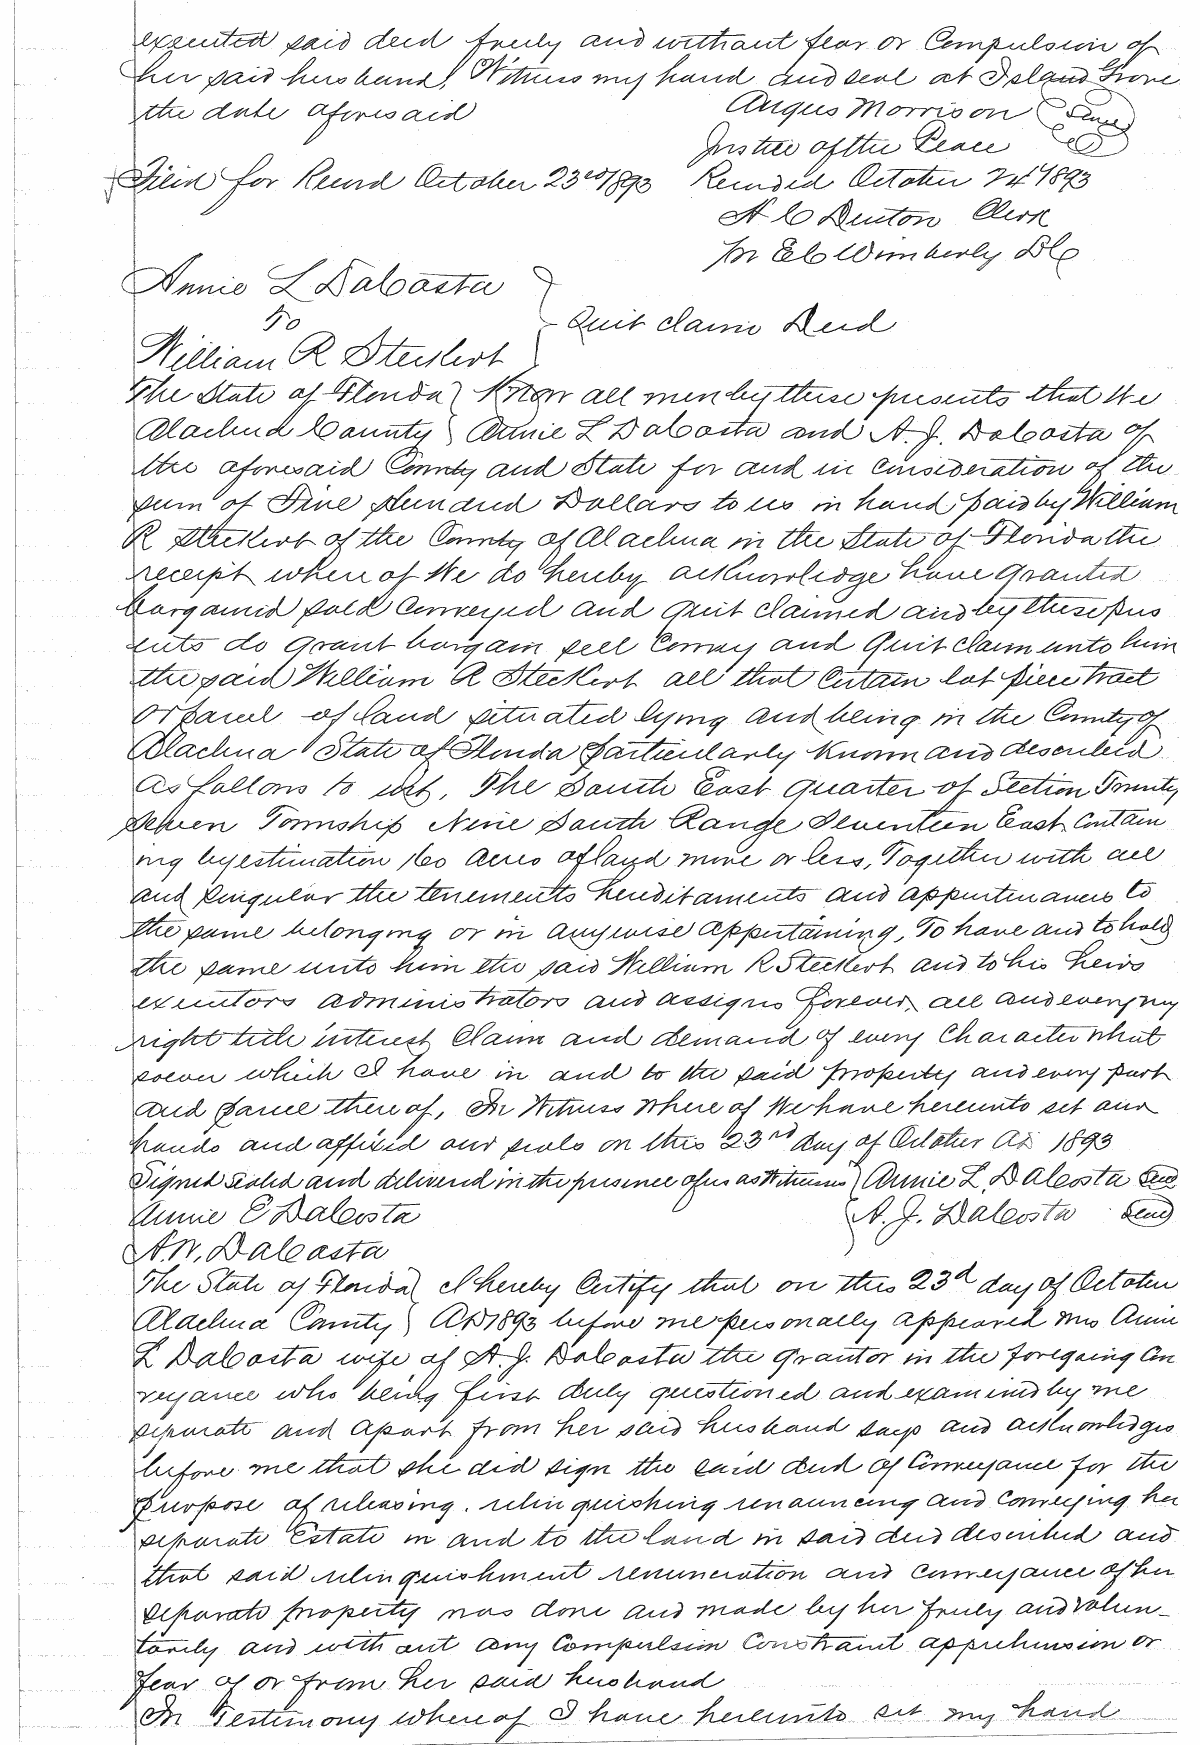 executed said deed freely and without fear or Compulsion of
her said husband, Witness my hand and seal at Island Grove
the date aforesaid
Angus Morrison (Seal)
Justice of the Peace
Filed for Record October 23rd 1893 Recorded October 24" 1893
H C Denton Clerk
pr E C Wimberly DC
Annie L DaCosta
to
Quit claim Deed
William R Steckert
The State of Florida } Know all men by these presents that We
Alachua County } Annie L DaCosta and A. J. DaCosta of
the aforesaid County and State for and in consideration of the
sum of Five Hundred Dollars to us in hand paid by William
R Steckert of the County of Alachua in the State of Florida the
receipt where of We do hereby acknowledge have granted
bargained sold Conveyed and quit claimed and by these pres
ents do grant bargain sell Convey and Quit claim unto him
the said William R Steckert all that certain lot piece tract
or parcel of land situated lying and being in the County of
Alachua State of Florida particularly known and described
as follows to wit, The South East quarter of Section Twenty
Seven Township Nine South Range Seventeen East contain
ing by estimation 160 acres of land more or less, Together with all
and singular the tenements hereditaments and appurtenances to
the same belonging or in anywise appertaining, To have and to hold
the same unto him the said William R Steckert and to his heirs
executors administrators and assigns forever, all and every my
right title interest Claim and demand of every Character what
soever which I have in and to the said property and every part
and parcel there of, In Witness Where of We have hereunto set our
hands and affixed our seals on this 23rd day of October AD 1893
Signed sealed and delivered in the presence of us as Witnesses } Annie L. DaCosta Seal
Annie E DaCosta } A. J. DaCosta Seal
A. W. DaCosta
The State of Florida } I hereby Certify that on this 23d day of October
Alachua County } AD 1893 before me personally appeared Mrs Annie
L DaCosta wife of A. J. DaCosta the grantor in the foregoing Con
veyance who being first duly questioned and examined by me
separate and apart from her said husband says and acknowledges
before me that she did sign the said deed of Conveyance for the
purpose of releasing, relinquishing renouncing and conveying her
separate Estate in and to the land in said deed described and
that said relinquishment renunciation and conveyance of her
separate property was done and made by her freely and volun-
tarily and with out any Compulsion Constraint apprehension or
fear of or from her said husband
In Testimony where of I have hereunto set my hand